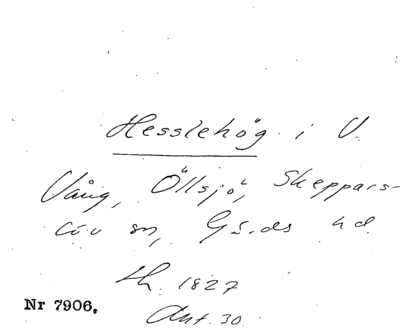 Hesslehög i V.
Vång, Öllsjö, Skeppars-
löv sn, Gärds hd
th. 1827
Ant. 30
Nr 7906.